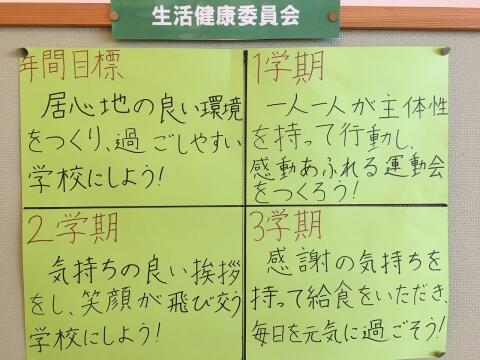 生活健康委員会
年間目標
居心地の良い環境
をつくり、過ごしやすい
学校にしよう!
1学期
一人一人が主体性
を持って行動し、
感動あふれる運動会
をつくろう!
2学期
気持ちの良い挨拶
をし、笑顔が飛び交う
学校にしよう!
3学期
感謝の気持ちを
持って給食をいただき、
毎日を元気に過ごそう!